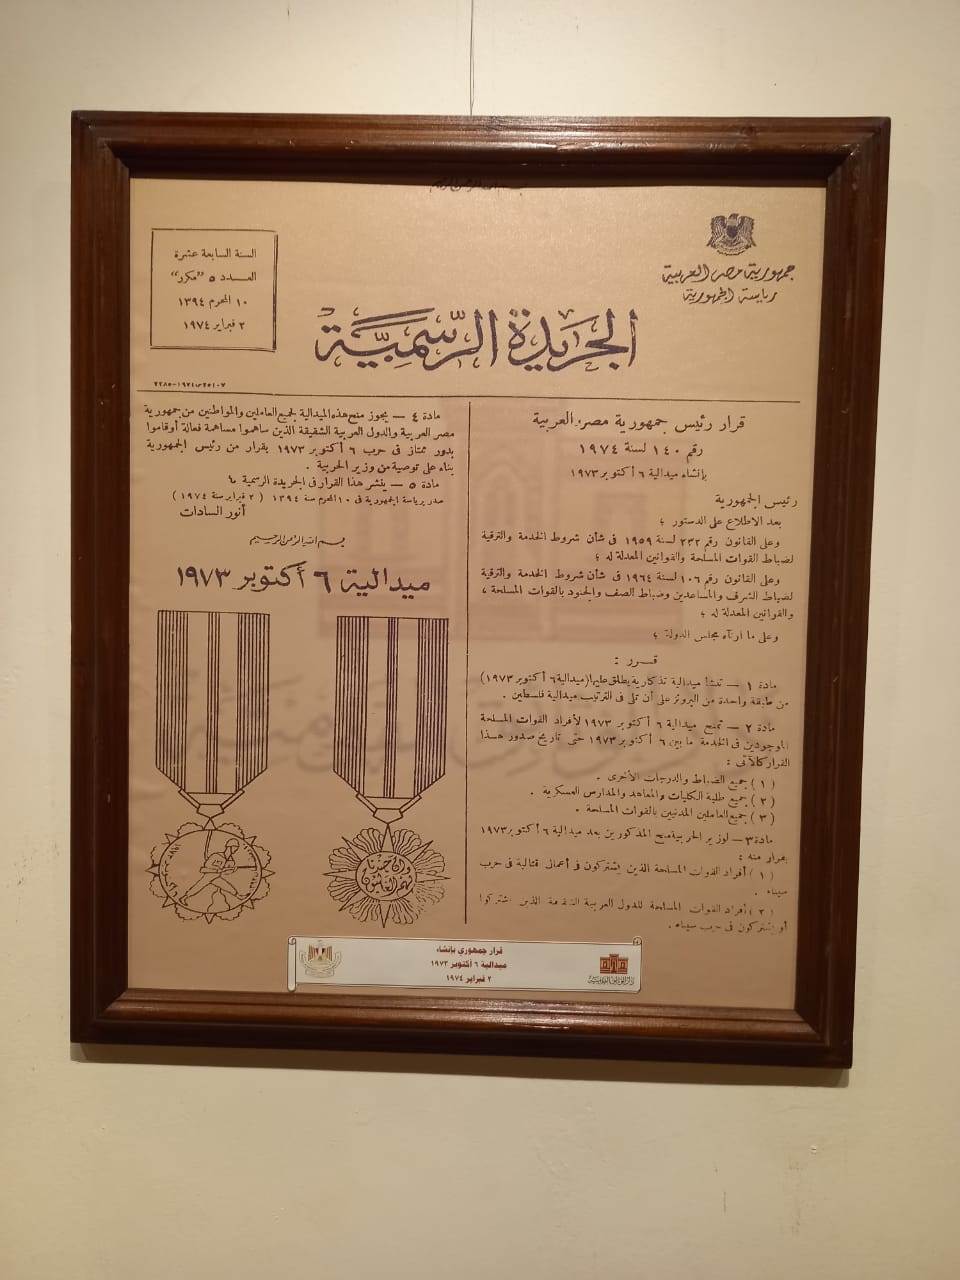 بسم الله الرحمن الرحيم
جمهورية مصر العربية
رياسة الجمهورية
السنة السابعة عشرة
العدد ٥ "مكرر"
١٠ المحرم ١٣٩٤
٢ فبراير ١٩٧٤
الجريدة الرسمية
قرار رئيس جمهورية مصر العربية
رقم ١٤٠ لسنة ١٩٧٤
بإنشاء ميدالية ٦ أكتوبر ١٩٧٣
رئيس الجمهورية
بعد الاطلاع على الدستور ؛
وعلى القانون رقم ٢٣٢ لسنة ١٩٥٩ فى شأن شروط الخدمة والترقية
لضباط القوات المسلحة والقوانين المعدلة له ؛
وعلى القانون رقم ١٠٦ لسنة ١٩٦٤ فى شأن شروط الخدمة والترقية
لضباط الشرف والمساعدين وضباط الصف والجنود بالقوات المسلحة ،
والقوانين المعدلة له ؛
وعلى ما ارتآه مجلس الدولة ؛
قرر :
مادة ١ — تنشأ ميدالية تذكارية يطلق عليها (ميدالية ٦ أكتوبر ١٩٧٣)
من طبقة واحدة من البرونز على أن تلى فى الترتيب ميدالية فلسطين .
مادة ٢ — تمنح ميدالية ٦ أكتوبر ١٩٧٣ لأفراد القوات المسلحة
الموجودين فى الخدمة ما بين ٦ أكتوبر ١٩٧٣ حتى تاريخ صدور هذا
القرار كالآتى :
(١) جميع الضباط والدرجات الأخرى .
(٢) جميع طلبة الكليات والمعاهد والمدارس العسكرية .
(٣) جميع العاملين المدنيين بالقوات المسلحة .
مادة ٣ — لوزير الحربية منح المذكورين بعد ميدالية ٦ أكتوبر ١٩٧٣
بقرار منه :
(١) أفراد القوات المسلحة الذين يشتركون فى أعمال قتالية فى حرب
سيناء .
(٢) أفراد القوات المسلحة للدول العربية الشقيقة الذين اشتركوا
أو يشتركون فى حرب سيناء .
مادة ٤ — يجوز منح هذه الميدالية لجميع العاملين والمواطنين من جمهورية
مصر العربية والدول العربية الشقيقة الذين ساهموا مساهمة فعالة أو قاموا
بدور ممتاز فى حرب ٦ أكتوبر ١٩٧٣ بقرار من رئيس الجمهورية
بناء على توصية من وزير الحربية .
مادة ٥ — ينشر هذا القرار فى الجريدة الرسمية
صدر برياسة الجمهورية فى ١٠ المحرم سنة ١٣٩٤ (٢ فبراير سنة ١٩٧٤)
أنور السادات
بسم الله الرحمن الرحيم
ميدالية ٦ أكتوبر ١٩٧٣
وإن جندنا
لهم الغالبون
قرار جمهوري بإنشاء
ميدالية ٦ أكتوبر ١٩٧٣
٢ فبراير ١٩٧٤
دار الوثائق القومية